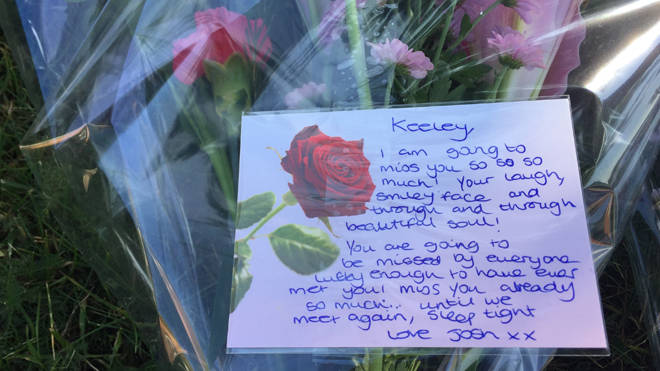 Keeley,
I am going to
miss you so so so
much! Your laugh,
smiley face and
through and through
beautiful soul!
You are going to
be missed by everyone
lucky enough to have ever
met you! miss you already
so much... until we
meet again, sleep tight
Love Josh xx